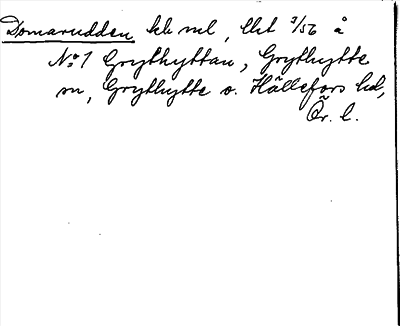 Domarudden, hb ml, Ukt 3/56 å
No 1 Grythyttan, Grythytte
sn, Grythytte o. Hällefors hd,
Ör. l.